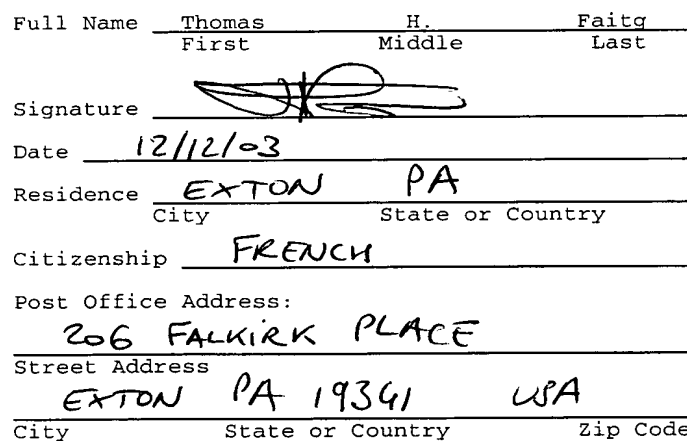 Full Name Thomas H. Faitg
First Middle Last
Signature
Date 12/12/03
Residence EXTON PA
City State or Country
Citizenship FRENCH
Post Office Address:
206 FALKIRK PLACE
Street Address
EXTON PA 19341 USA
City State or Country Zip Code